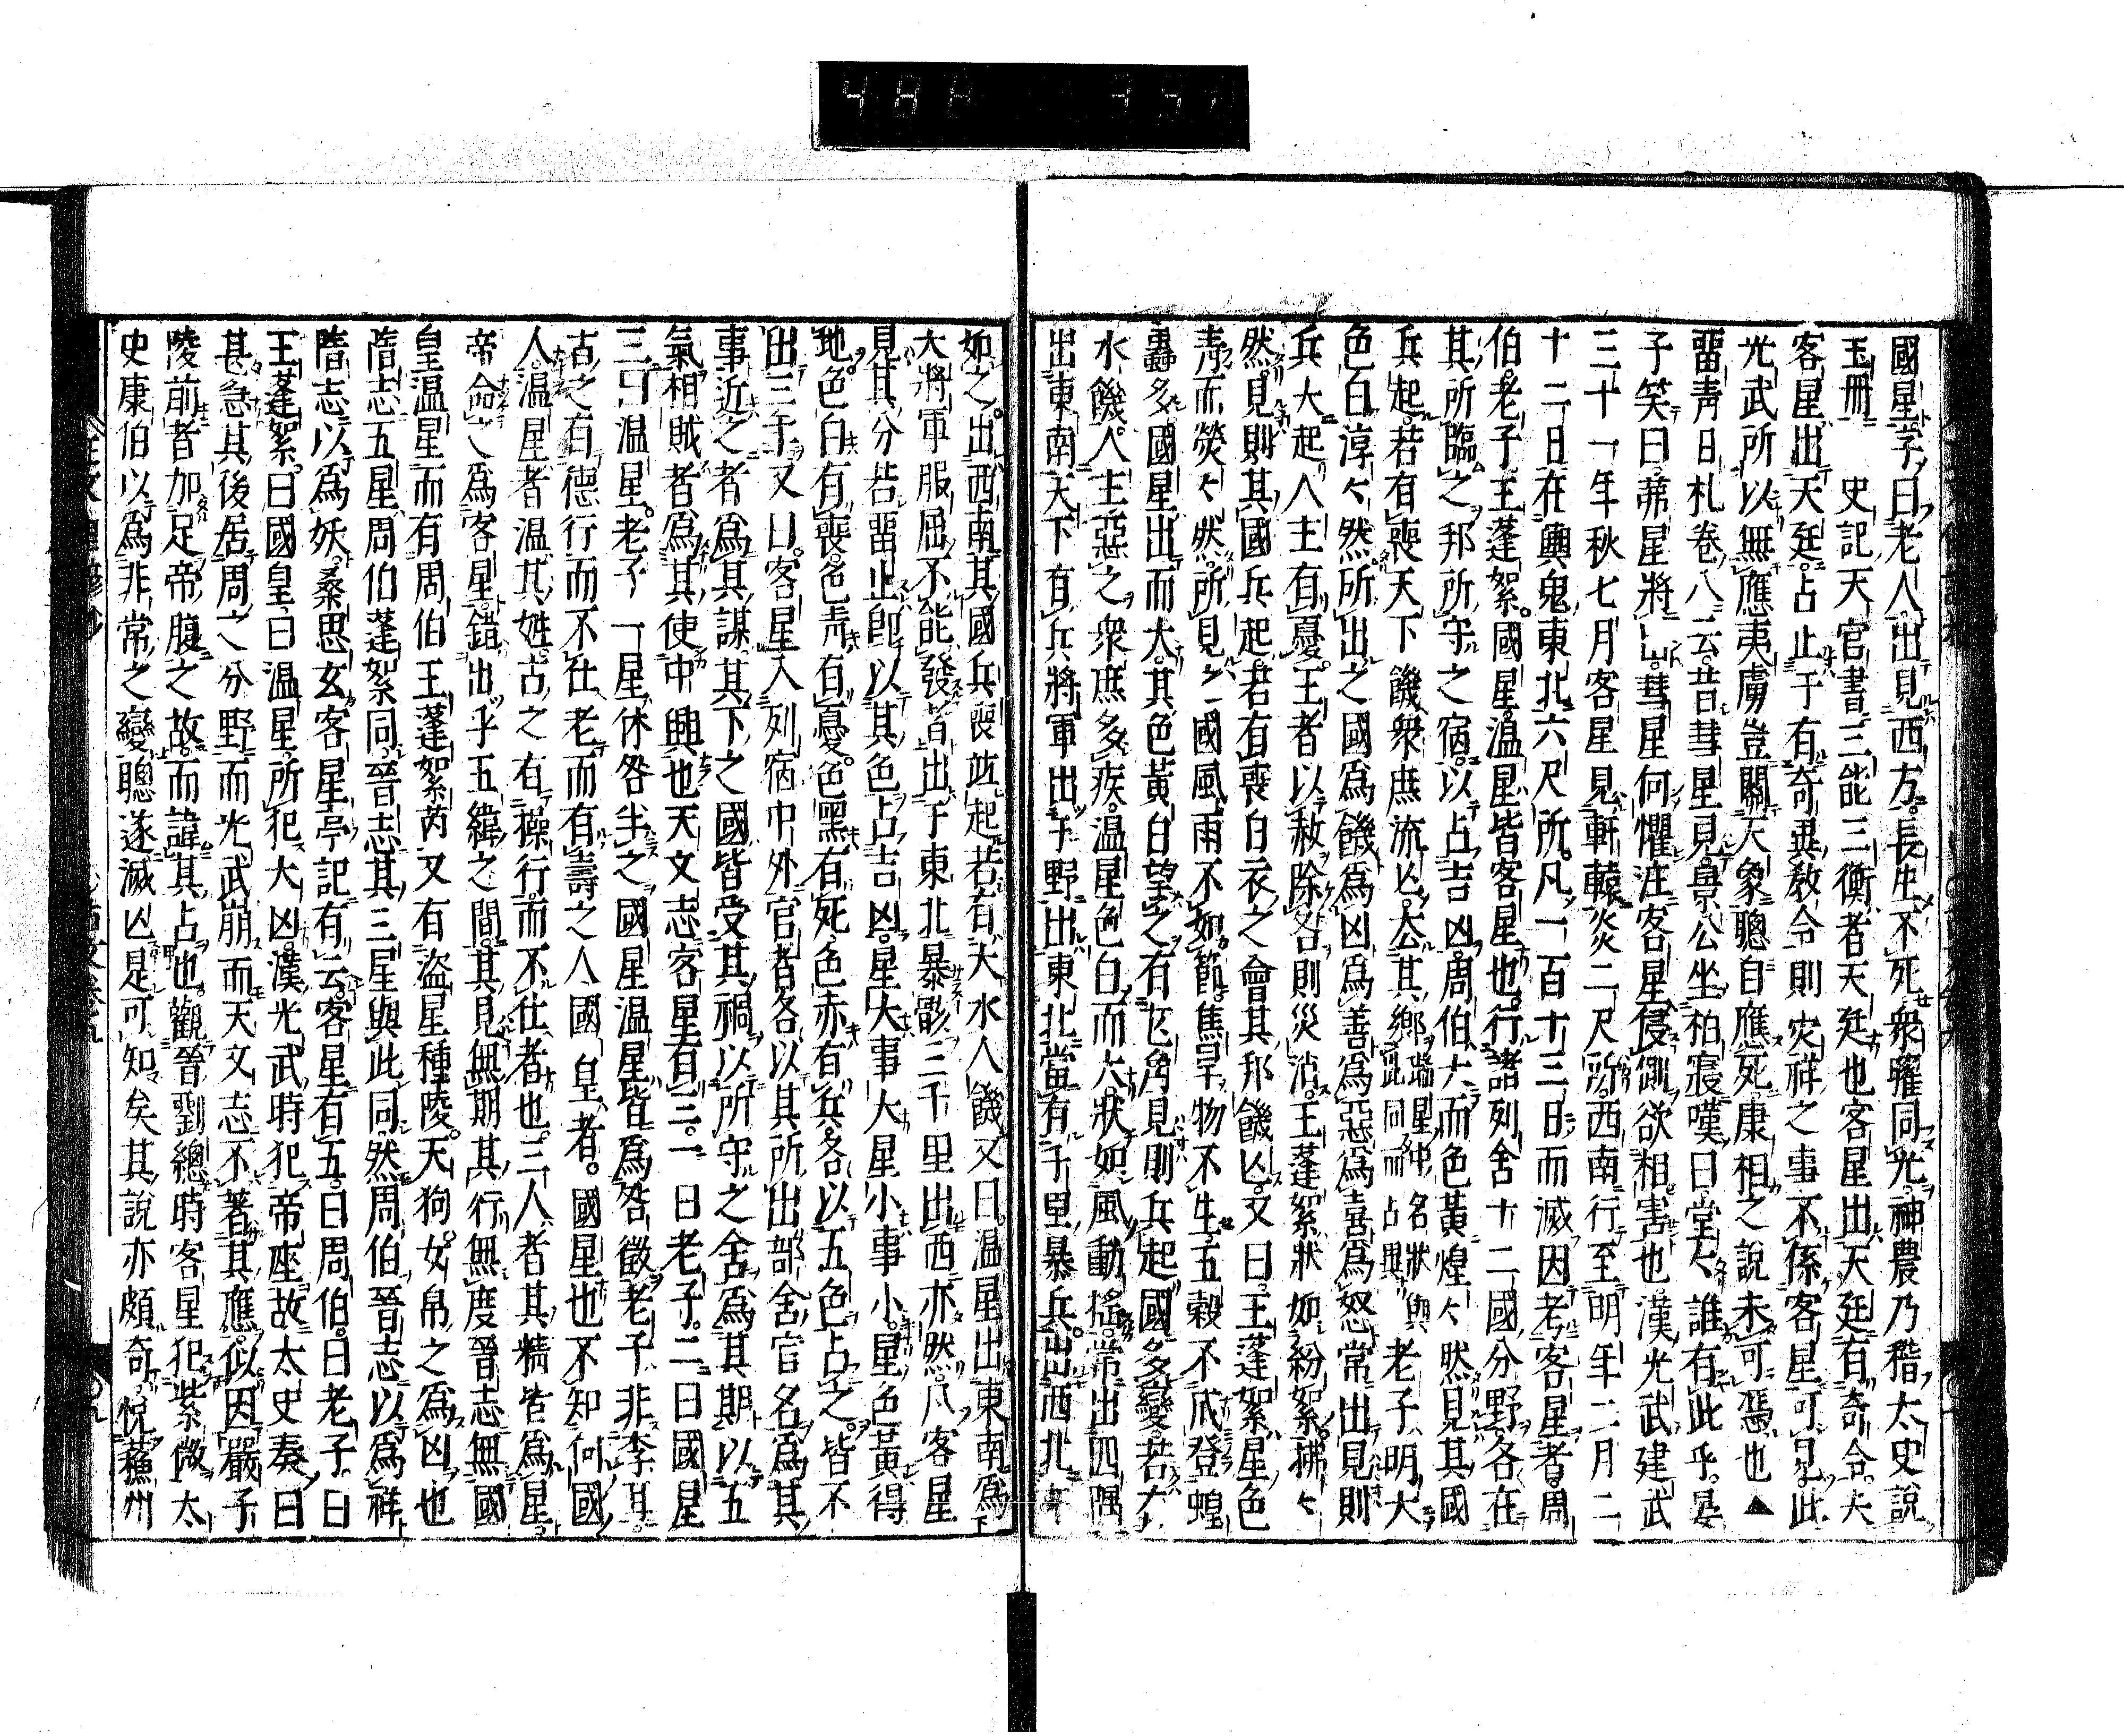 國星字曰老人出見西方長生不死衆曜同光神農乃稽太史說
玉冊 史記天官書三能三衡者天廷也客星出天廷有奇令夫
客星出天廷占止于有奇異教令則灾祥之事不係客星可見此
光武所以無應夷虜豈關天象聰自應死康相之說未可焉也▲
畱青日札卷八云昔彗星見景公坐柏寢嘆曰堂々誰有此乎晏
子笑曰茀星將出彗星何懼注客星侵側欲相害也漢光武建武
三十一年秋七月客星見軒轅炎二尺所西南行至明年二月二
十二日在輿鬼東北六尺所凡一百十三日而滅因考客星者周
伯老子王蓬絮國星温星皆客星也行諸列舍十二國分野各在
其所臨之邦所守之宿以占吉凶周伯大而色黃煌々然見其國
兵起若有喪天下饑衆庶流亾去其鄉瑞星中名狀與此同而占異老子明大
色白淳々然所出之國爲饑爲凶爲善爲惡爲喜爲怒常出見則
兵大起人主有憂王者以赦除咎則災消王蓬絮狀如紛絮拂々
然見則其國兵起若有喪白衣之會其邦饑亾又曰王蓬絮星色
青而熒々然所見之國風雨不如節焦旱物不生五穀不成登蝗
蟲多國星出而大其色黃白望之有芒角見則兵起國多變若有
水饑人主惡之衆庶多疾温星色白而大狀如風動搖常出四隅
出東南天下有兵將軍出于野出東北當有千里暴兵出西北亦
如之出西南其國兵喪竝起若有大水人饑又曰温星出東南爲
大將軍服屈不能發者出于東北暴骸三千里出西亦然凡客星
見其分若畱止即以其色占吉凶星大事大星小事小星色黃得
地色白有喪色靑有憂色黑有死色赤有兵各以五色占之皆不
出三千又曰客星入列宿中外官者各以其所出部舍官名爲其
事近之者爲其謀其下之國皆受其禍以所守之舍爲其期以五
氣相賊者爲其使中興也天文志客星有三一曰老子二曰國星
三曰温星老子一星休咎半之國星温星皆爲咎徵老子非李耳
古之有德行而不仕老而有壽之人國皇者國星也不知何國
人温星者温其姓古之有操行而不仕者也三人者其精皆爲星
帝命之爲客星錯出乎五緯之間其見無期其行無度晉志無國
皇温星而有周伯王蓬絮芮又有盜星種陵天狗女帛之爲凶也
隋志五星周伯蓬絮同晉志其三星與此同然周伯晉志以爲祥
隋志以爲妖桑思玄客星亭記有云客星有五曰周伯曰老子曰
王蓬絮曰國皇曰温星所犯大凶漢光武時犯帝座故太史奏曰
甚急其後居周之分野而光武崩而天文志不著其應似因嚴子
陵前者加足帝腹之故而諱其占也觀晉劉總時客星犯紫微太
史康伯以爲非常之變聰遂滅亾是可知矣其說亦頗奇悅蘇州